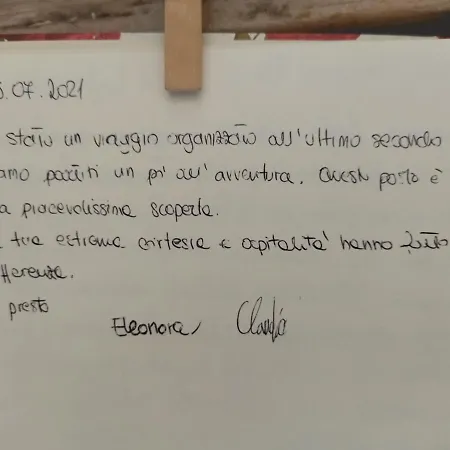 .07.2021
stato un viaggio organizzato all'ultimo secondo
amo partiti un po' all'avventura. Questo posto è
a piacevolissima scoperta.
tua estrema cortesia e ospitalità hanno fatto
fferenza.
presto
Eleonora, Claudia